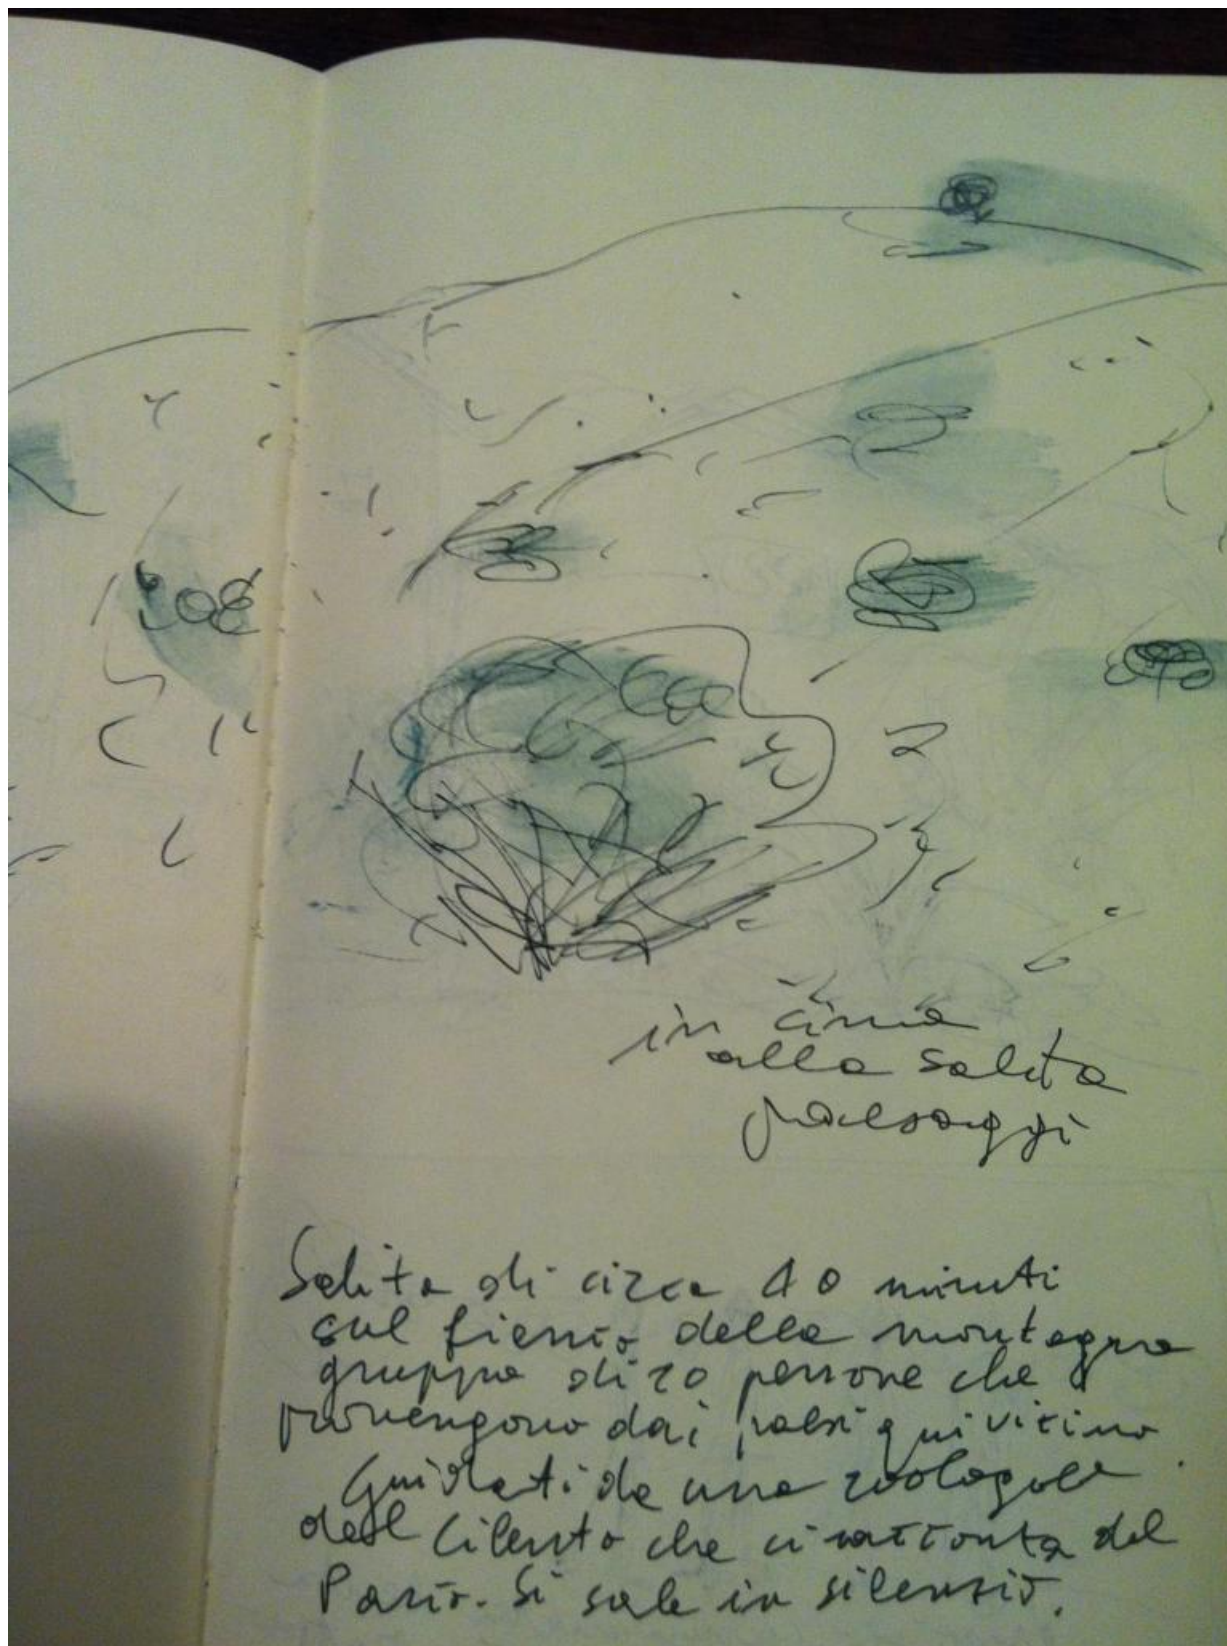 in cima
alla salita
paesaggi
Salita di circa 40 minuti
sul fianco della montagna
gruppo di 20 persone che
provengono dai paesi qui vicino
Guidati da una zoologa
del Cilento che ci racconta del
Parco. Si sale in silenzio.